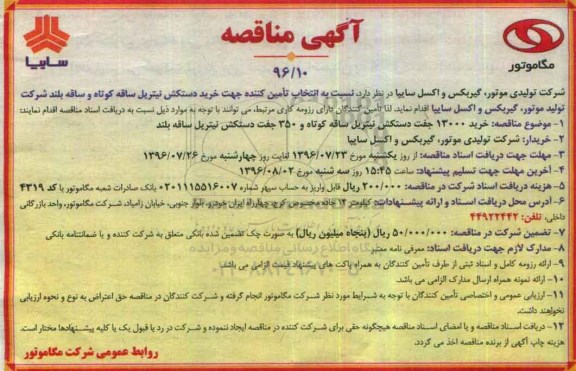 آگهی مناقصه
۹۶/۱۰
سایپا
مگاموتور
شرکت تولیدی موتور، گیربکس و اکسل سایپا در نظر دارد، نسبت به انتخاب تأمین کننده جهت خرید دستکش نیتریل ساقه کوتاه و ساقه بلند شرکت
تولید موتور، گیربکس و اکسل سایپا اقدام نماید. لذا تأمین کنندگان دارای رزومه کاری مرتبط، می توانند با توجه به موارد ذیل نسبت به دریافت اسناد مناقصه اقدام نمایند:
۱- موضوع مناقصه: خرید ۱۳۰۰۰ جفت دستکش نیتریل ساقه کوتاه و ۳۵۰ جفت دستکش نیتریل ساقه بلند
۲- خریدار: شرکت تولیدی موتور، گیربکس و اکسل سایپا
۳- مهلت جهت دریافت اسناد مناقصه: از روز یکشنبه مورخ ۱۳۹۶/۰۷/۲۳ لغایت روز چهارشنبه مورخ ۱۳۹۶/۰۷/۲۶
۴- آخرین مهلت جهت تسلیم پیشنهاد: ساعت ۱۵:۴۵ روز سه شنبه مورخ ۱۳۹۶/۰۸/۰۲
۵- هزینه دریافت اسناد شرکت در مناقصه: ۲۰۰/۰۰۰ ریال قابل واریز به حساب سپهر شماره ۰۲۰۱۱۱۵۵۱۶۰۰۷ بانک صادرات شعبه مگاموتور با کد ۴۳۱۹
۶- آدرس محل دریافت اسناد و ارائه پیشنهادات: کیلومتر ۱۴ جاده مخصوص کرج، چهارراه ایران خودرو، بلوار جنوبی، خیابان زامیاد، شرکت مگاموتور، واحد بازرگانی
داخلی، تلفن: ۴۴۹۲۲۴۴۲
۷- تضمین شرکت در مناقصه: ۵۰/۰۰۰/۰۰۰ ریال (پنجاه میلیون ریال) به صورت چک تضمین شده بانکی متعلق به شرکت کننده و یا ضمانتنامه بانکی
۸- مدارک لازم جهت دریافت اسناد: معرفی نامه معتبر
۹- ارائه رزومه کامل و اسناد ثبتی از طرف تأمین کنندگان به همراه پاکت های پیشنهاد قیمت الزامی می باشد.
۱۰- ارائه نمونه همراه ارسال مدارک الزامی می باشد.
۱۱- ارزیابی عمومی و اختصاصی تأمین کنندگان با توجه به شرایط مورد نظر شرکت مگاموتور انجام گرفته و شرکت کنندگان در مناقصه حق اعتراض به نوع و نحوه ارزیابی
نخواهند داشت.
۱۲- دریافت اسناد مناقصه و یا امضای اسناد مناقصه هیچگونه حقی برای شرکت کننده در مناقصه ایجاد ننموده و شرکت در رد یا قبول یک یا کلیه پیشنهادها مختار است.
هزینه چاپ آگهی از برنده مناقصه اخذ می گردد.
روابط عمومی شرکت مگاموتور